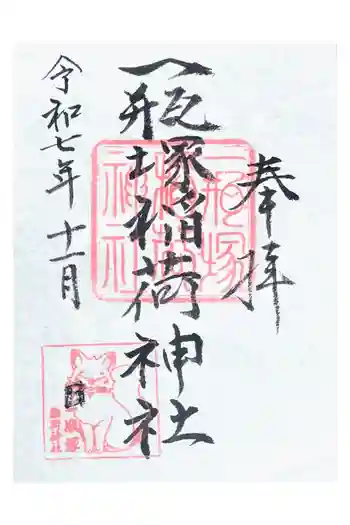 奉拝
一瓶塚稲荷神社
令和七年 十一月
一瓶塚
稲荷
神社